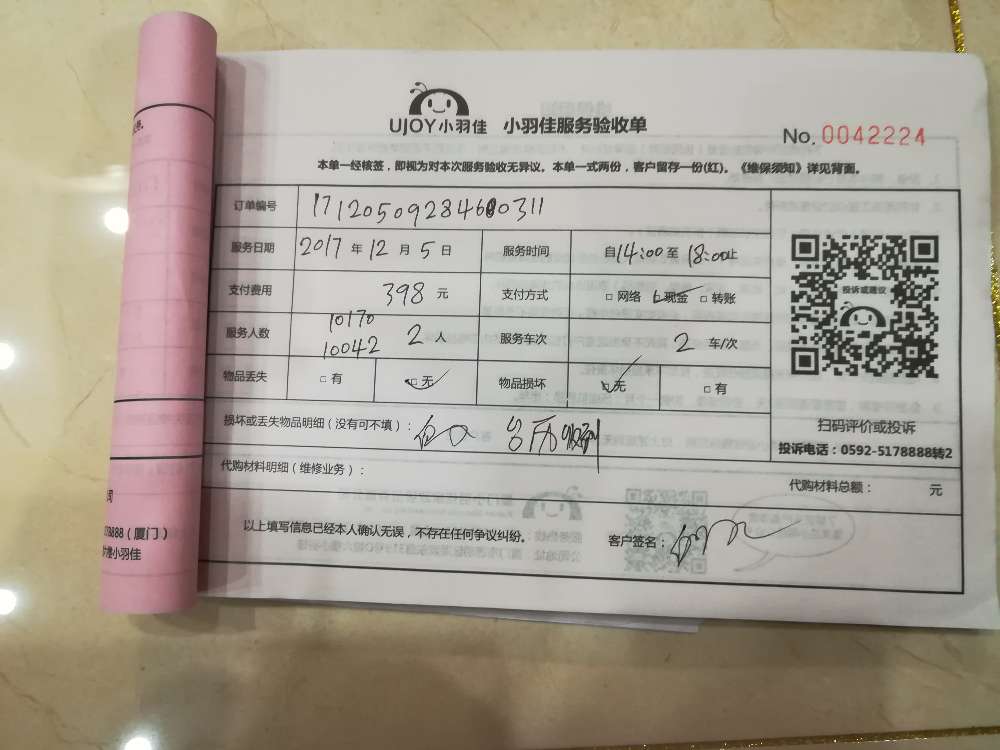 UJOY小羽佳 小羽佳服务验收单
No. 0042224
本单一经核签，即视为对本次服务验收无异议。本单一式两份，客户留存一份(红)。《维保须知》详见背面。
订单编号
服务日期 2017 年 12 月 5 日 服务时间 自14:00至18:00止
支付费用 398 元 支付方式 □ 网络 □ 现金 □ 转账
服务人数 10170 10042 2 人 服务车次 2 车/次
物品丢失 □ 有 □ 无 物品损坏 □ 无 □ 有
投诉或建议
扫码评价或投诉
投诉电话：0592-5178888转2
损坏或丢失物品明细（没有可不填）：
代购材料明细（维修业务）：
代购材料总额： 元
以上填写信息已经本人确认无误，不存在任何争议纠纷。 客户签名：
司
（厦门）
小羽佳